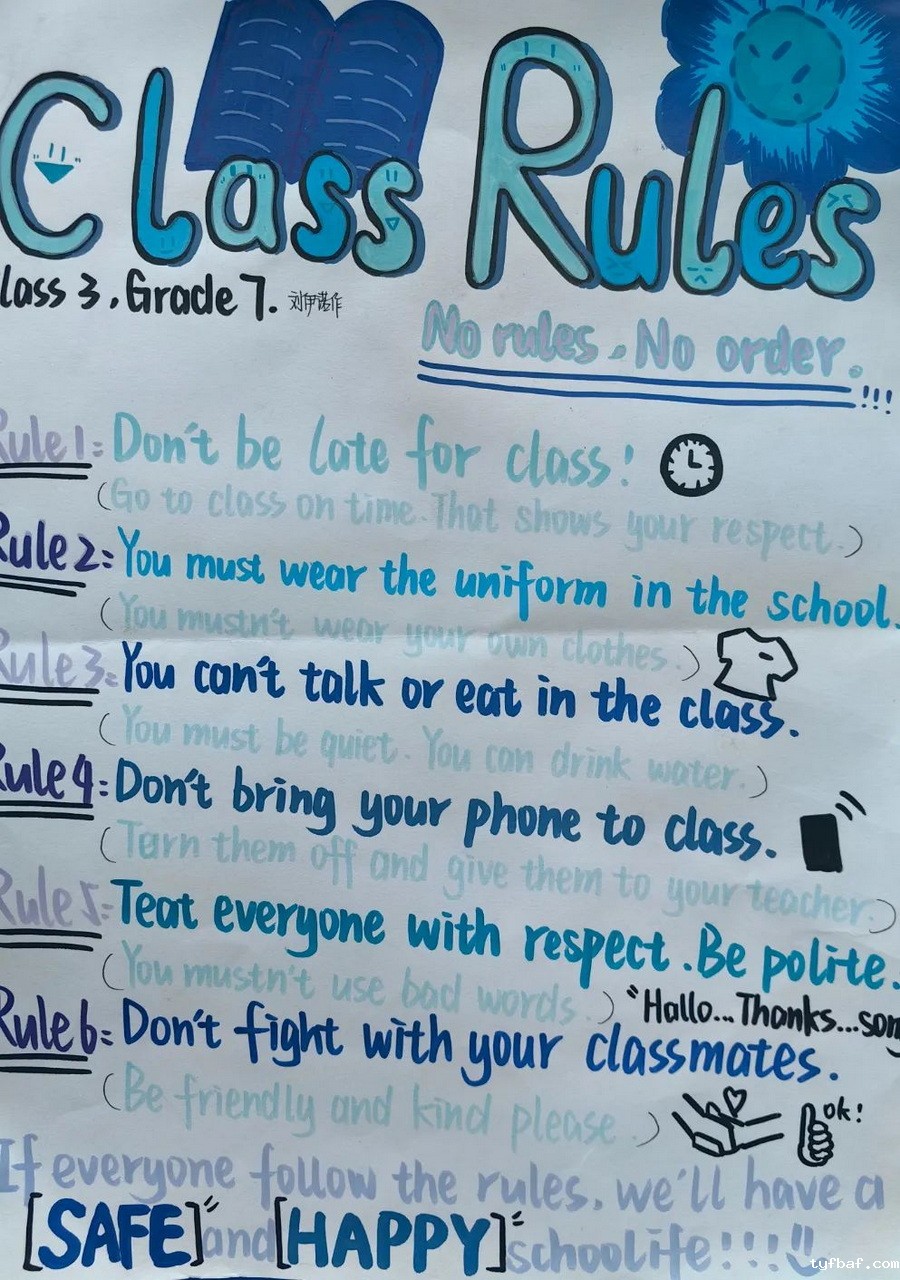 Class Rules
lass 3, Grade 7. 刘伊诺作
No rules, No order.!!!
Rule 1: Don't be late for class!
(Go to class on time. That shows your respect.)
Rule 2: You must wear the uniform in the school.
(You mustn't wear your own clothes.)
Rule 3: You can't talk or eat in the class.
(You must be quiet. You can drink water.)
Rule 4: Don't bring your phone to class.
(Turn them off and give them to your teacher.)
Rule 5: Teat everyone with respect. Be polite.
(You mustn't use bad words.) "Hallo...Thanks...
Rule 6: Don't fight with your classmates.
(Be friendly and kind please.)
ok!
If everyone follow the rules, we'll have a
[SAFE] and [HAPPY] schoolife!!!
tyfbaf.com